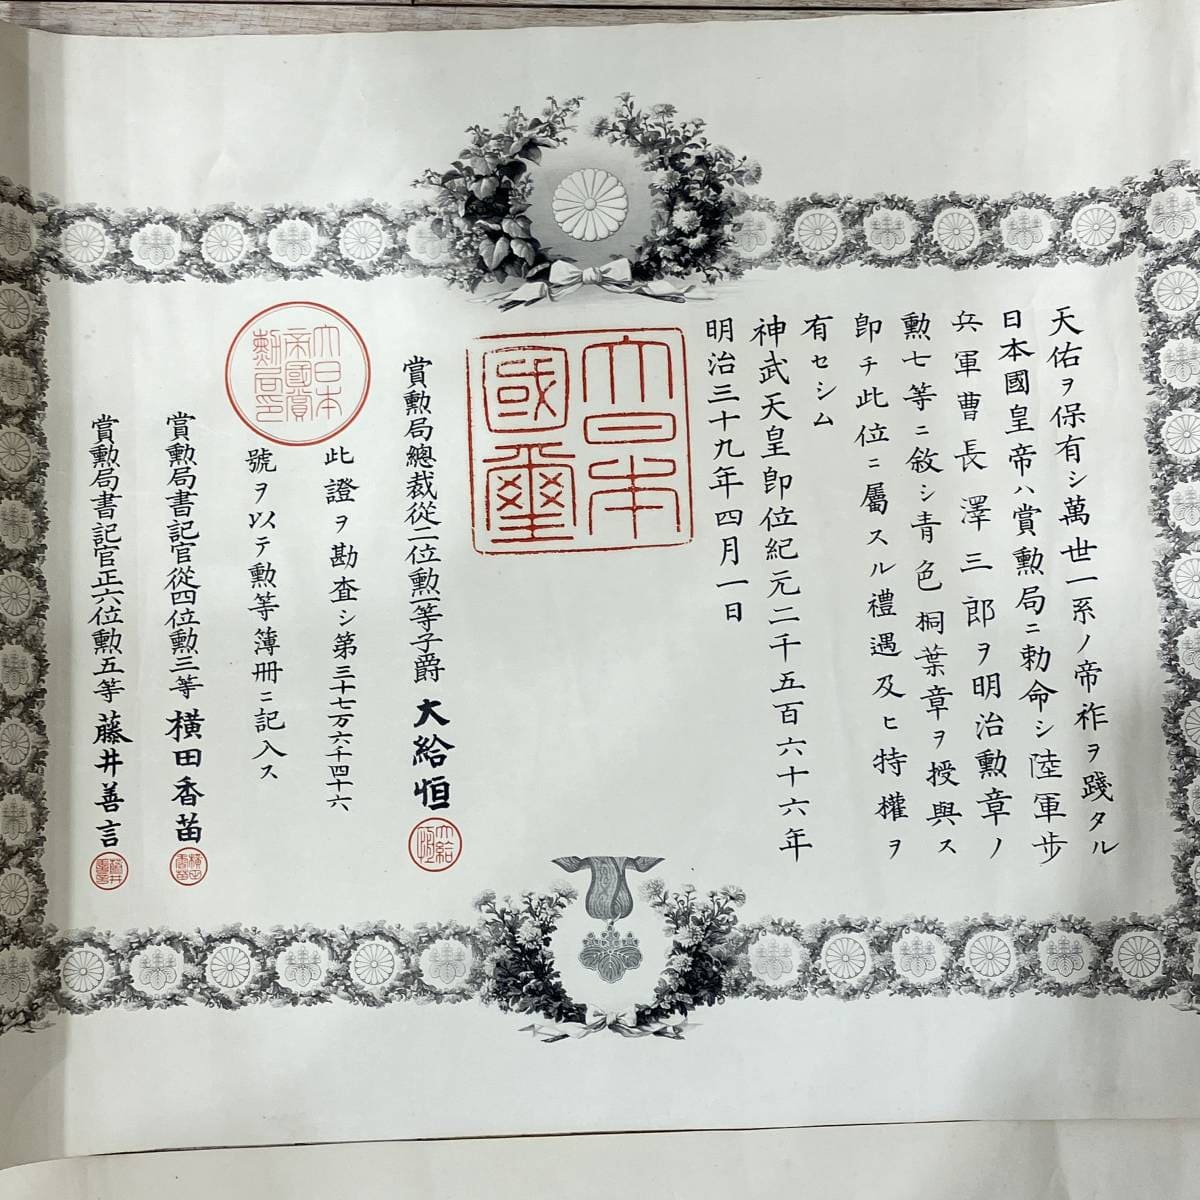 天佑ヲ保有シ萬世一系ノ帝祚ヲ踐タル
日本國皇帝ハ賞勲局ニ勅命シ陸軍歩
兵軍曹長澤三郎ヲ明治勲章ノ
勲七等ニ敘シ青色桐葉章ヲ授與ス
卽チ此位ニ屬スル禮遇及ヒ特權ヲ
有セシム
神武天皇卽位紀元二千五百六十六年
明治三十九年四月一日
大日本
國璽
賞勲局總裁從二位勲一等子爵大給恒
大給
恒
此證ヲ勘査シ第三十七万六千四十六
號ヲ以テ勲等簿册ニ記入ス
大日本
帝國賞
勲局印
賞勲局書記官從四位勲三等横田香苗
横田
香苗
賞勲局書記官正六位勲五等藤井善言
藤井
善言